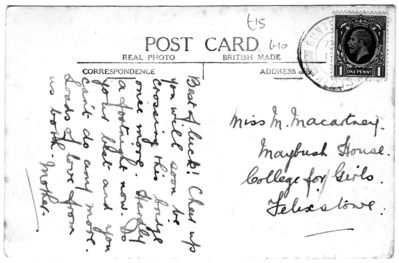 £15
POST CARD
REAL PHOTO
BRITISH MADE
CORRESPONDENCE
ADDRESS
1 ONE PENNY 1
Best of luck! Cheer up
you will soon be
crossing this bridge
once more. Hardly
a fortnight now. Do
your best and you
can't do any more.
Loads of love from
us both
Mother.
Miss M. Macartney.
Maybush House.
College for Girls.
Felixstowe.